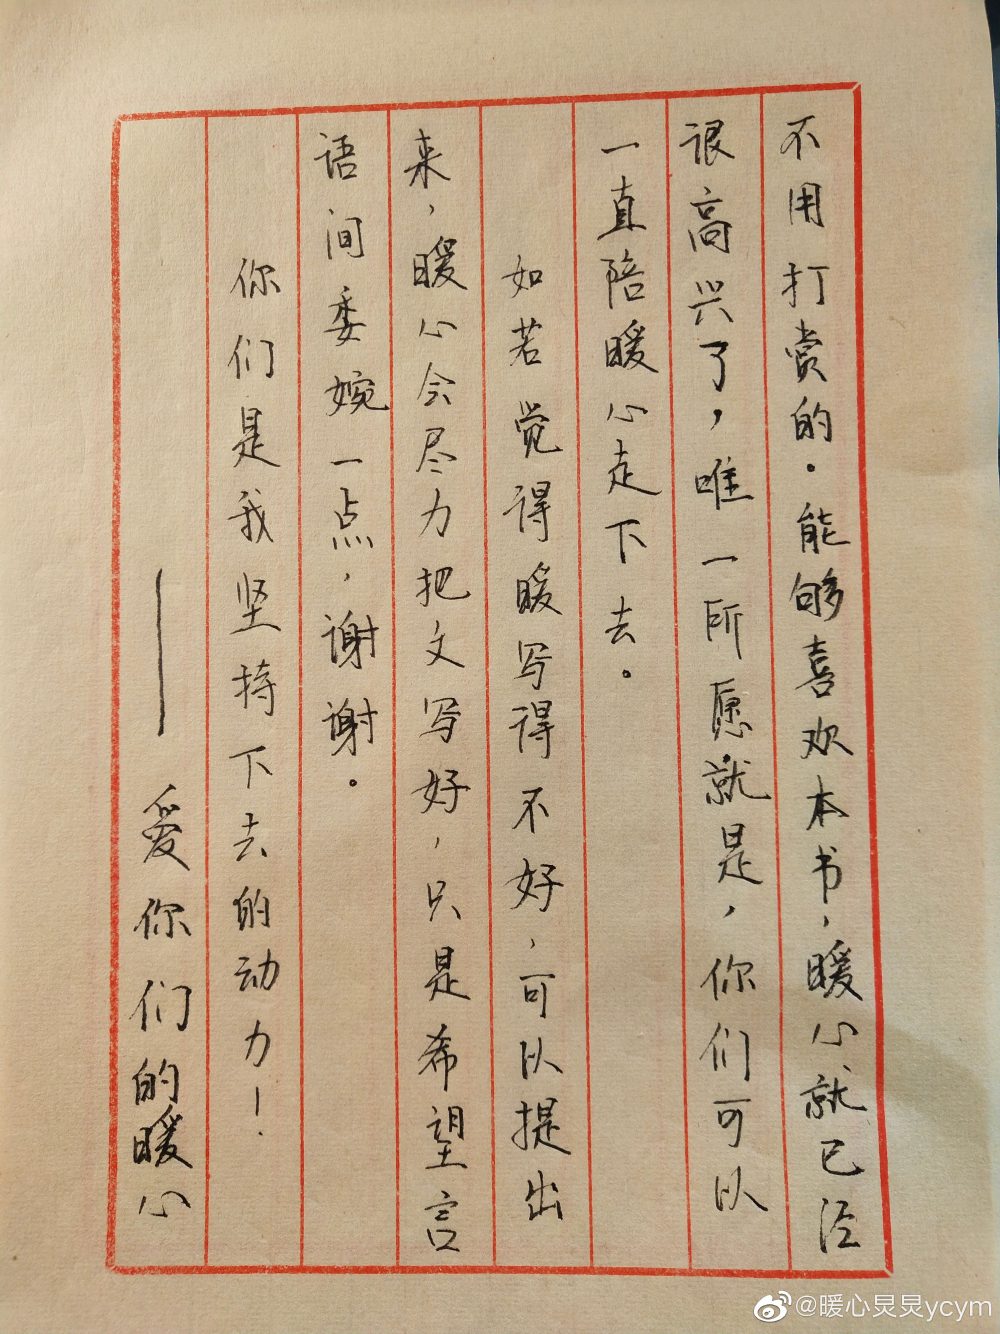 不用打赏的.能够喜欢本书,暖心就已经
很高兴了,唯一所愿就是,你们可以
一直陪暖心走下去。
如若觉得暖写得不好,可以提出
来,暖心会尽力把文写好,只是希望言
语间委婉一点,谢谢。
你们是我坚持下去的动力!
——爱你们的暖心
@暖心炅炅ycym